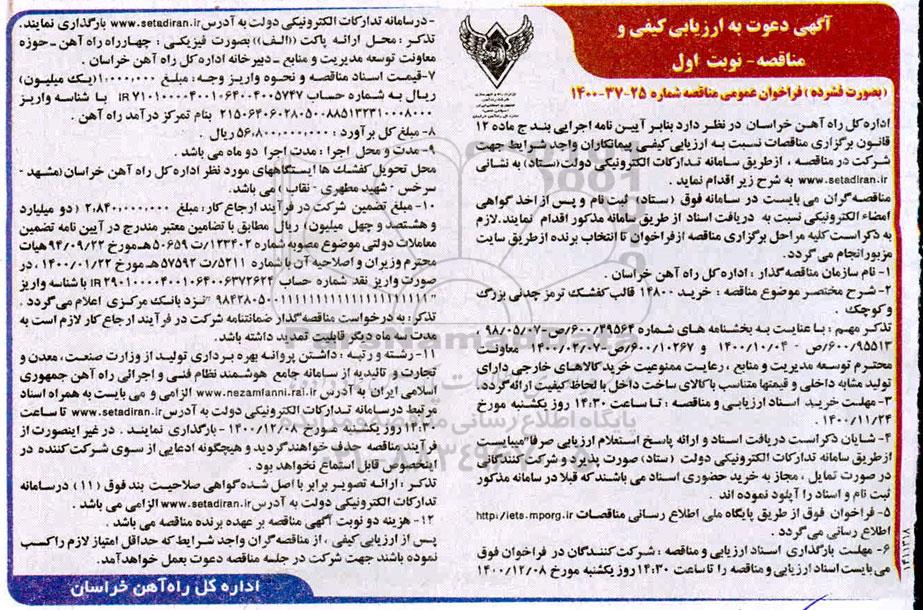 آگهی دعوت به ارزیابی کیفی و
مناقصه - نوبت اول
(بصورت فشرده) فراخوان عمومی مناقصه شماره ۲۵-۳۷-۱۴۰۰
اداره کل راه آهن خراسان در نظر دارد بنابر آیین نامه اجرایی بند ج ماده ۱۲
قانون برگزاری مناقصات نسبت به ارزیابی کیفی پیمانکاران واجد شرایط جهت
شرکت در مناقصه ، از طریق سامانه تدارکات الکترونیکی دولت (ستاد) به نشانی
www.setadiran.ir به شرح زیر اقدام نماید .
مناقصه گران می بایست در سامانه فوق (ستاد) ثبت نام و پس از اخذ گواهی
امضاء الکترونیکی نسبت به دریافت اسناد از طریق سامانه مذکور اقدام نمایند. لازم
به ذکر است کلیه مراحل برگزاری مناقصه از فراخوان تا انتخاب برنده از طریق سایت
مزبور انجام می گردد.
۱- نام سازمان مناقصه گذار : اداره کل راه آهن خراسان .
۲- شرح مختصر موضوع مناقصه : خرید ۱۴۸۰۰ قالب کفشک ترمز چدنی بزرگ
و کوچک .
تذکر مهم : با عنایت به بخشنامه های شماره ۶۰۰/۳۹۵۶۴/ص-۹۸/۰۵/۰۷ ،
۶۰۰/۹۵۵۱۳/ص - ۱۴۰۰/۱۰/۰۴ و ۶۰۰/۱۰۲۶۷/ص-۱۴۰۰/۰۲/۰۷ معاونت
محترم توسعه مدیریت و منابع ، رعایت ممنوعیت خرید کالاهای خارجی دارای
تولید مشابه داخلی و قیمتها متناسب با کالای ساخت داخل با لحاظ کیفیت ارائه گردد.
۳- مهلت خرید اسناد ارزیابی و مناقصه : تا ساعت ۱۴:۳۰ روز یکشنبه مورخ
۱۴۰۰/۱۱/۲۴ .
۴- شایان ذکر است دریافت اسناد و ارائه پاسخ استعلام ارزیابی صرفا" میبایست
از طریق سامانه تدارکات الکترونیکی دولت (ستاد) صورت پذیرد و شرکت کنندگانی
در صورت تمایل ، مجاز به خرید حضوری اسناد می باشند که قبلا در سامانه مذکور
ثبت نام و اسناد را آپلود نموده اند .
۵- فراخوان فوق از طریق پایگاه ملی اطلاع رسانی مناقصات http:/iets.mporg.ir
اطلاع رسانی می گردد .
۶- مهلت بارگذاری اسناد ارزیابی و مناقصه : شرکت کنندگان در فراخوان فوق
می بایست اسناد ارزیابی و مناقصه را تا ساعت ۱۴:۳۰ روز یکشنبه مورخ ۱۴۰۰/۱۲/۰۸
- در سامانه تدارکات الکترونیکی دولت به آدرس www.setadiran.ir بارگذاری نمایند.
تذکر : محل ارائه پاکت ((الف)) بصورت فیزیکی : چهارراه راه آهن - حوزه
معاونت توسعه مدیریت و منابع - دبیرخانه اداره کل راه آهن خراسان .
۷- قیمت اسناد مناقصه و نحوه واریز وجه : مبلغ ۱,۰۰۰,۰۰۰ (یک میلیون)
ریال به شماره حساب IR۷۱۰۱۰۰۰۰۴۰۰۱۰۶۴۰۰۴۰۰۵۷۴۷ با شناسه واریز
۲۱۵۰۶۴۰۶۰۲۸۰۵۰۰۸۸۵۱۳۳۳۱۰۰۰۸۰۰۰ بنام تمرکز درآمد راه آهن .
۸- مبلغ کل برآورد : ۵۶,۸۰۰,۰۰۰,۰۰۰ ریال .
۹- مدت و محل اجرا : مدت اجرا دو ماه می باشد .
محل تحویل کفشک ها ایستگاههای مورد نظر اداره کل راه آهن خراسان (مشهد -
سرخس - شهید مطهری - نقاب ) می باشد.
۱۰- مبلغ تضمین شرکت در فرآیند ارجاع کار : مبلغ ۲,۸۴۰,۰۰۰,۰۰۰ ( دو میلیارد
و هشتصد و چهل میلیون) ریال مطابق با تضامین معتبر مندرج در آیین نامه تضمین
معاملات دولتی موضوع مصوبه شماره ۱۲۳۴۰۲/ت ۵۰۶۵۹ هـ مورخ ۹۴/۰۹/۲۲ هیات
محترم وزیران و اصلاحیه آن با شماره ۵۲۱۱/ت ۵۷۵۹۲ هـ مورخ ۱۴۰۰/۰۱/۲۲ ، در
صورت واریز نقد شماره حساب IR۲۹۰۱۰۰۰۰۴۰۰۱۰۶۴۰۰۶۳۷۲۶۲۲ با شناسه واریز
نزد بانک مرکزی اعلام می گردد .
تذکر : به درخواست مناقصه گذار ضمانتنامه شرکت در فرآیند ارجاع کار لازم است به
مدت سه ماه دیگر قابلیت تمدید داشته باشد.
۱۱- رشته و رتبه : داشتن پروانه بهره برداری تولید از وزارت صنعت، معدن و
تجارت و تائیدیه از سامانه جامع هوشمند نظام فنی و اجرائی راه آهن جمهوری
اسلامی ایران به آدرس www.nezamfanni.rai.ir الزامی و می بایست به همراه اسناد
مرتبط در سامانه تدارکات الکترونیکی دولت به آدرس www.setadiran.ir تا ساعت
۱۴:۳۰ روز یکشنبه مورخ ۱۴۰۰/۱۲/۰۸ - بارگذاری نمایند . در غیر اینصورت از
فرآیند مناقصه حذف خواهند گردید و هیچگونه ادعایی از سوی شرکت کننده در
اینخصوص قابل استماع نخواهد بود .
تذکر : ارائه تصویر برابر با اصل شده گواهی صلاحیت بند فوق (۱۱) در سامانه
تدارکات الکترونیکی دولت به آدرس www.setadiran.ir الزامی می باشد .
۱۲- هزینه دو نوبت آگهی مناقصه بر عهده برنده مناقصه می باشد .
پس از ارزیابی کیفی ، از مناقصه گران واجد شرایط که حداقل امتیاز لازم را کسب
نموده باشند جهت شرکت در جلسه مناقصه دعوت بعمل خواهد آمد.
اداره کل راه آهن خراسان